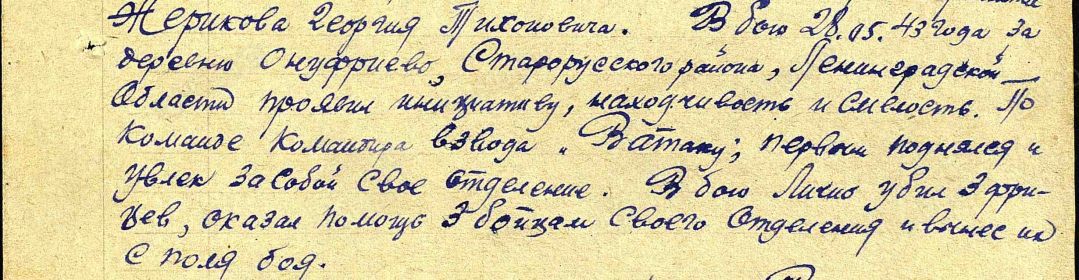 Жерикова Георгия Тихоновича. В бою 28.05.43 года за
деревню Онуфриево, Старорусского района, Ленинградской
Области проявил инициативу, находчивость и смелость. По
команде командира взвода "В атаку", первый поднялся и
увлек за собой свое отделение. В бою лично убил 3 фри-
цев, оказал помощь 3 бойцам своего отделения и вынес их
с поля боя.